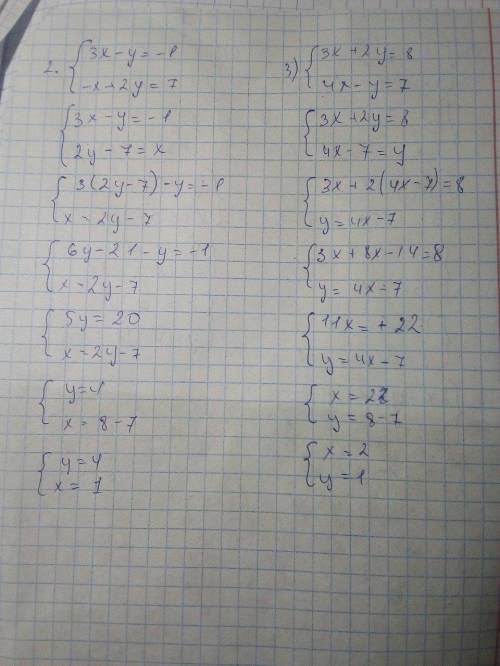 2. { 3x - y = -1
-x + 2y = 7
{ 3x - y = -1
2y - 7 = x
{ 3(2y - 7) - y = -1
x = 2y - 7
{ 6y - 21 - y = -1
x = 2y - 7
{ 5y = 20
x = 2y - 7
{ y = 4
x = 8 - 7
{ y = 4
x = 1
3) { 3x + 2y = 8
4x - y = 7
{ 3x + 2y = 8
4x - 7 = y
{ 3x + 2(4x - 7) = 8
y = 4x - 7
{ 3x + 8x - 14 = 8
y = 4x - 7
{ 11x = + 22
y = 4x - 7
{ x = 2
y = 8 - 7
{ x = 2
y = 1